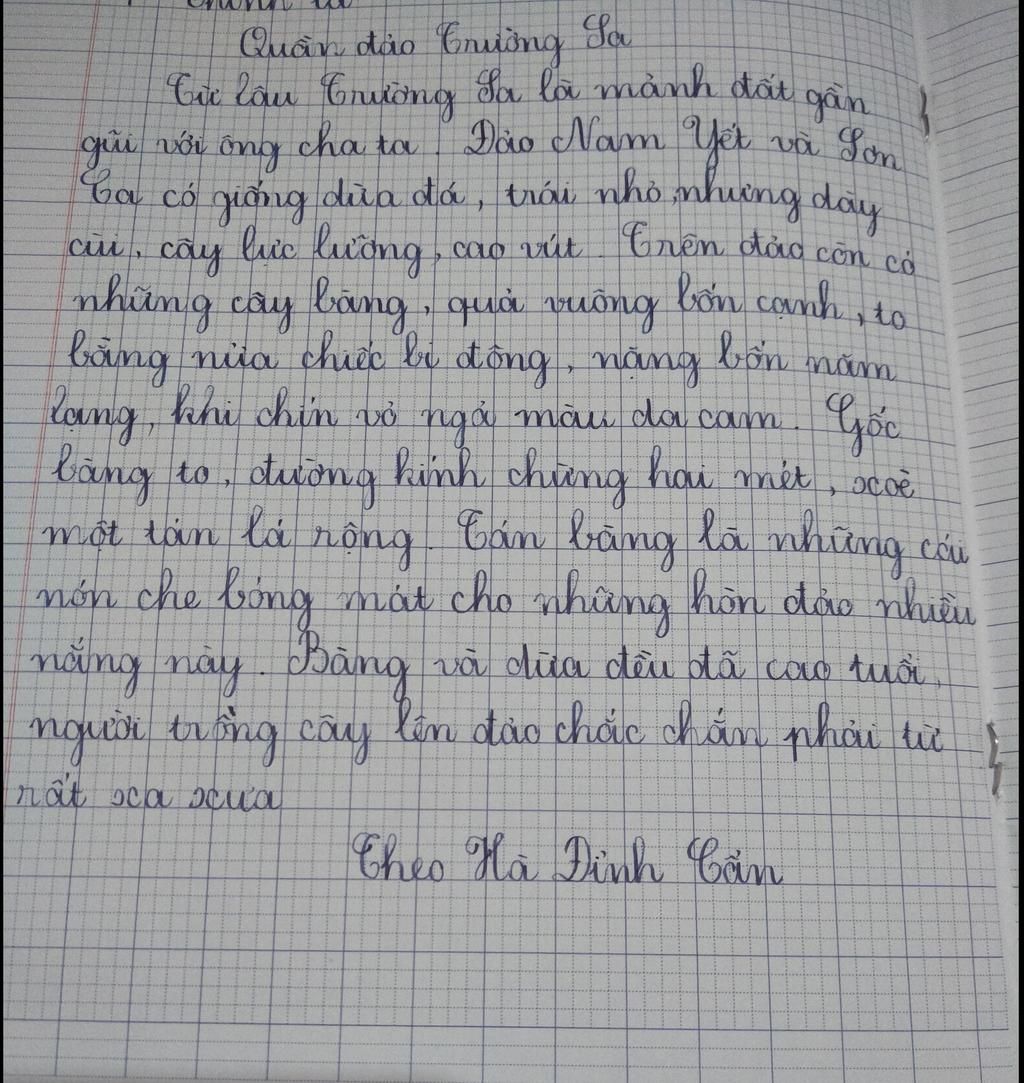 Chính tả
Quần đảo Trường Sa
Từ lâu Trường Sa là mảnh đất gần
gũi với ông cha ta. Đảo Nam Yết và Sơn
Ca có giống dừa đá, trái nhỏ, nhưng dày
cùi, cây lực lưỡng, cao vút. Trên đảo còn có
những cây bàng, quả vuông bốn cạnh, to
bằng nửa chiếc bi đông, nặng bốn năm
lạng, khi chín vỏ ngả màu da cam. Gốc
bàng to, đường kính chừng hai mét, xoè
một tán lá rộng. Tán bàng là những cái
nón che bóng mát cho những hòn đảo nhiều
nắng này. Bàng và dừa đều đã cao tuổi,
người trồng cây lên đảo chắc chắn phải từ
rất xa xưa
Theo Hà Đình Cẩn